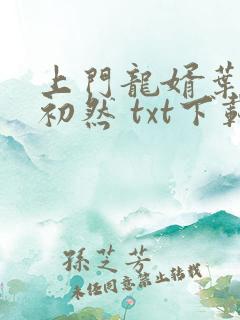 上門龍婿葉
初然 txt下載
孫芝芳
未经同意禁止转载